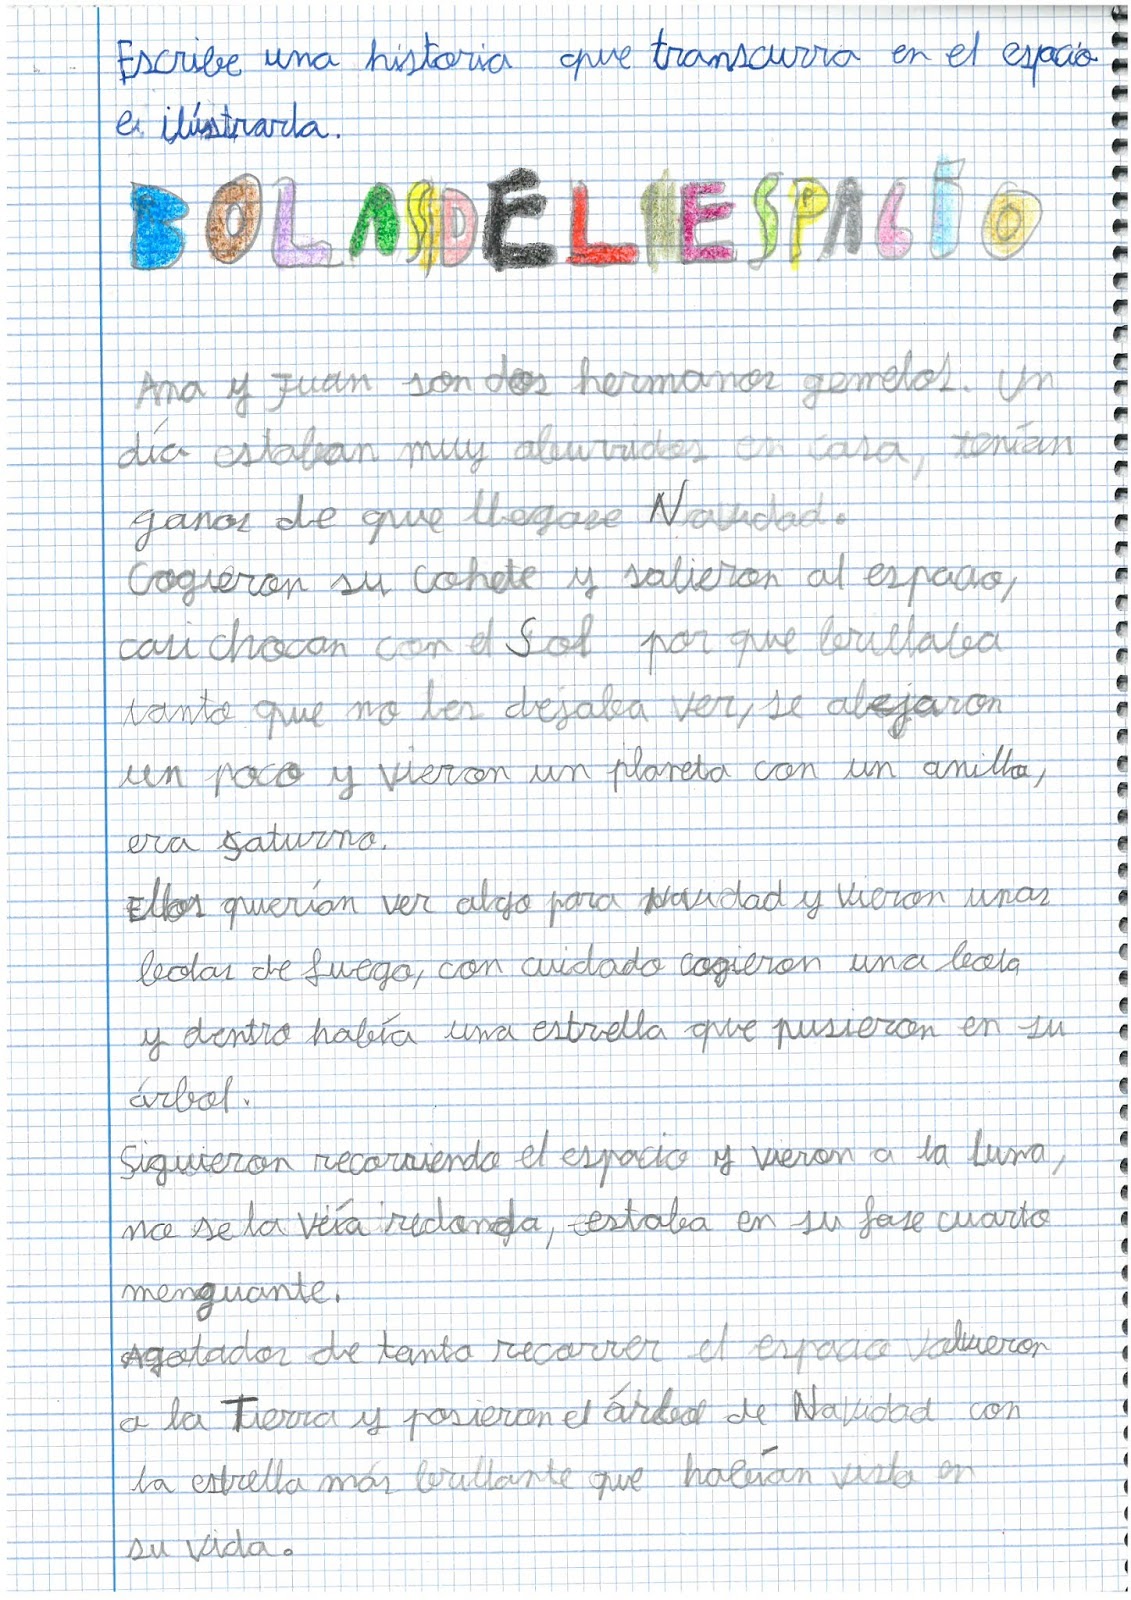 Escribe una historia que transcurra en el espacio
e ilústrarla.
BOLAS DEL ESPACIO
Ana y Juan son dos hermanos gemelos. Un
día estaban muy aburridos en casa, tenían
ganas de que llegase Navidad.
Cogieron su cohete y salieron al espacio,
casi chocan con el Sol por que brillaba
tanto que no les dejaba ver, se alejaron
un poco y vieron un planeta con un anillo,
era Saturno.
Ellos querían ver algo para Navidad y vieron unas
bolas de fuego, con cuidado cogieron una bola
y dentro había una estrella que pusieron en su
árbol.
Siguieron recorriendo el espacio y vieron a la Luna,
no se la veía redonda, estaba en su fase cuarto
menguante.
Agotados de tanto recorrer el espacio volvieron
a la Tierra y posieron el árbol de Navidad con
la estrella más brillante que habían visto en
su vida.